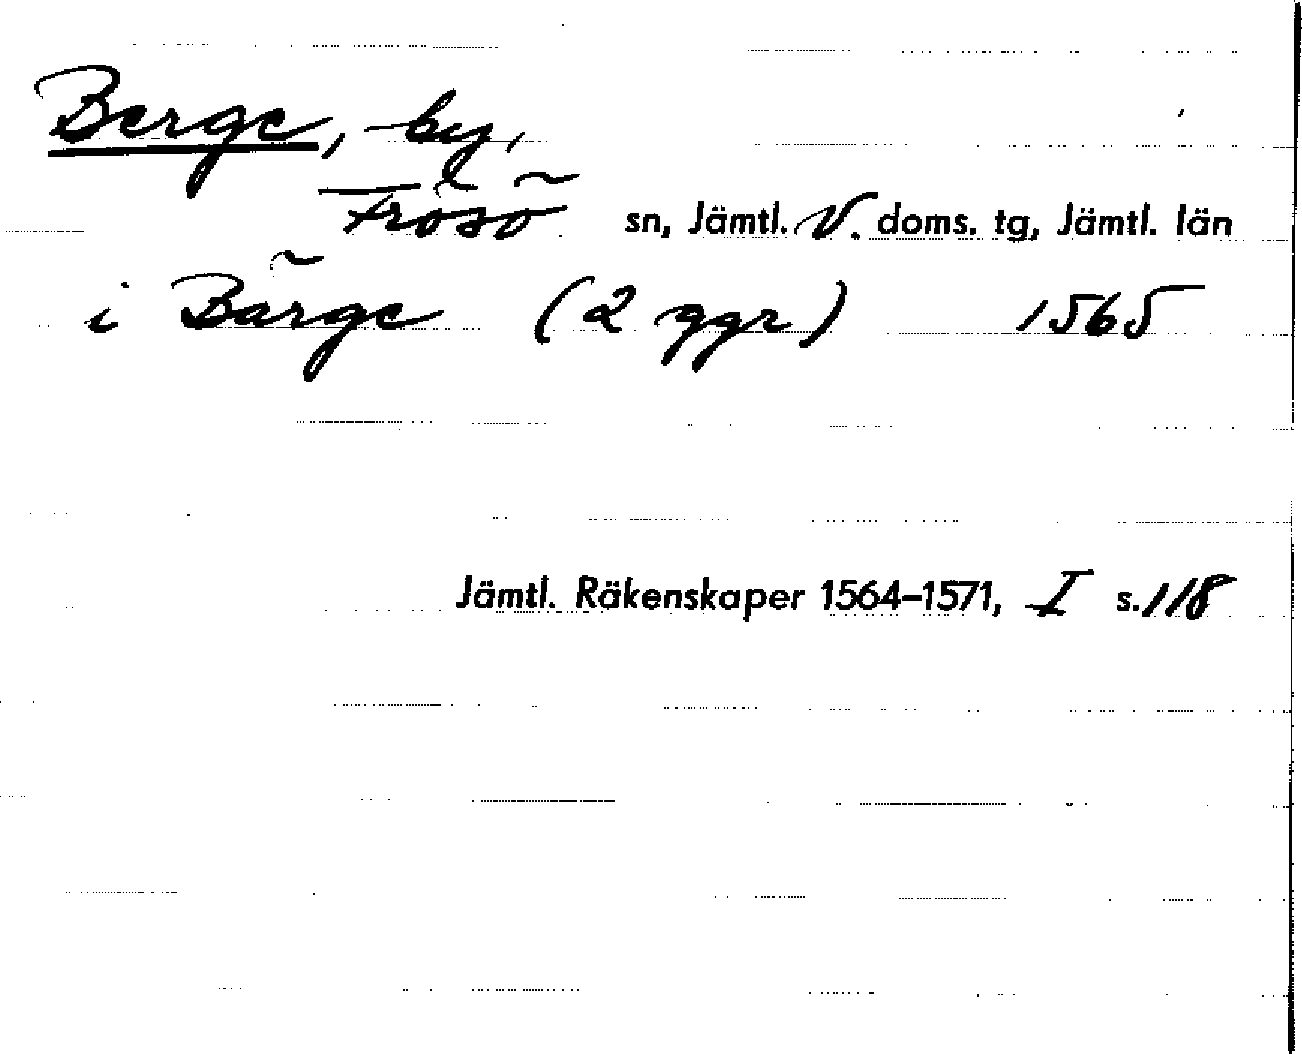 Berge, by,
Frösö sn, Jämtl. V. doms. tg, Jämtl. län
i Bärge (2 ggr) 1565
Jämtl. Räkenskaper 1564–1571, I s. 118